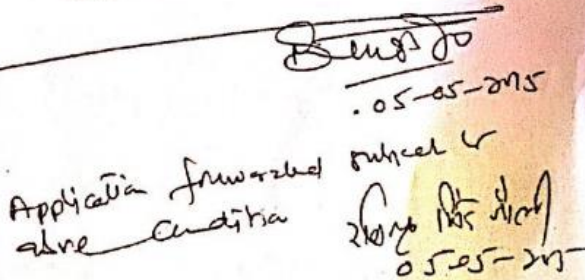 05-05-2015
Application forwarded subject to
above condition
05-05-2015